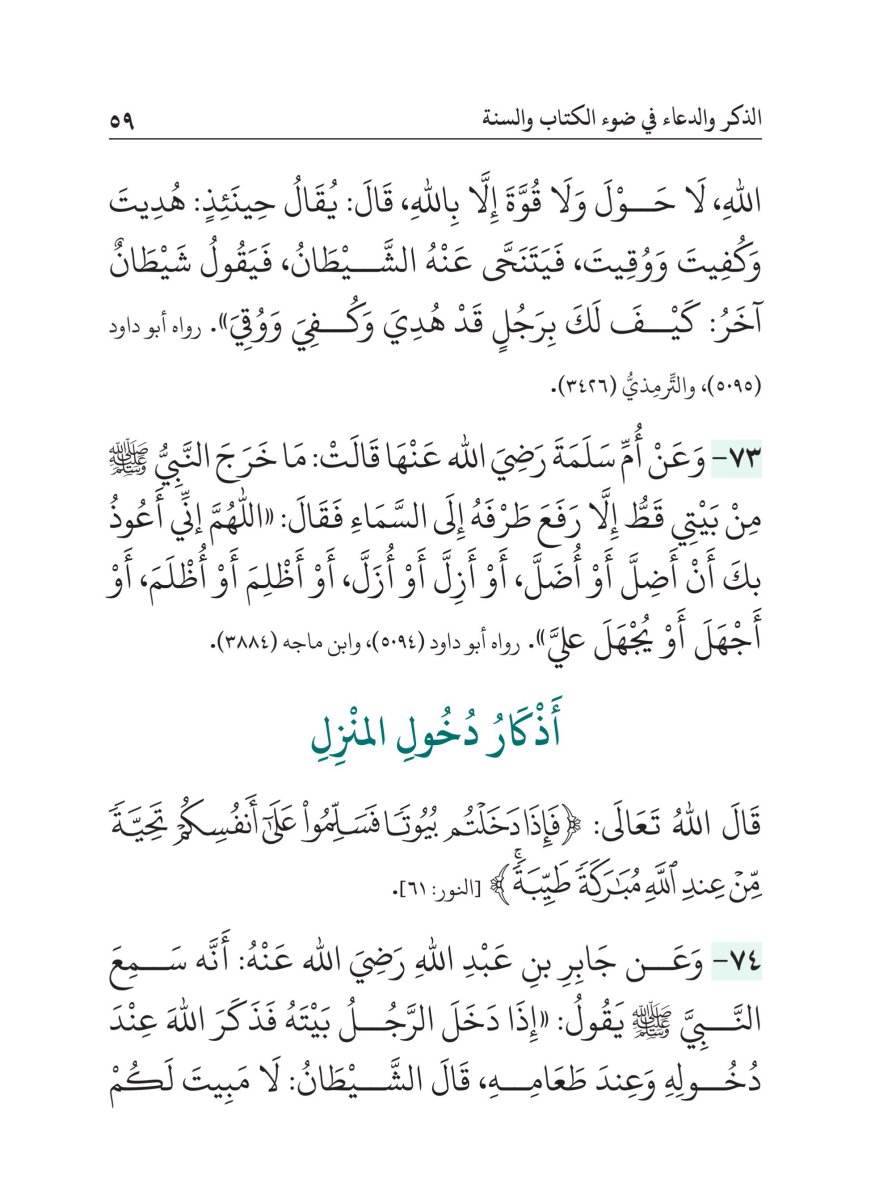 الذكر والدعاء في ضوء الكتاب والسنة ٥٩
اللهِ، لَا حَوْلَ وَلَا قُوَّةَ إِلَّا بِاللهِ، قَالَ: يُقَالُ حِينَئِذٍ: هُدِيتَ
وَكُفِيتَ وَوُقِيتَ، فَيَتَنَحَّى عَنْهُ الشَّيْطَانُ، فَيَقُولُ شَيْطَانٌ
آخَرُ: كَيْفَ لَكَ بِرَجُلٍ قَدْ هُدِيَ وَكُفِيَ وَوُقِيَ». رواه أبو داود
(٥٠٩٥)، والتِّرمِذيُّ (٣٤٢٦).
٧٣- وَعَنْ أُمِّ سَلَمَةَ رَضِيَ الله عَنْهَا قَالَتْ: مَا خَرَجَ النَّبِيُّ ﷺ
مِنْ بَيْتِي قَطُّ إِلَّا رَفَعَ طَرْفَهُ إِلَى السَّمَاءِ فَقَالَ: «اللهُمَّ إنِّي أَعُوذُ
بكَ أَنْ أَضِلَّ أَوْ أُضَلَّ، أَوْ أَزِلَّ أَوْ أُزَلَّ، أَوْ أَظْلِمَ أَوْ أُظْلَمَ، أَوْ
أَجْهَلَ أَوْ يُجْهَلَ عليَّ». رواه أبو داود (٥٠٩٤)، وابن ماجه (٣٨٨٤).
أَذْكَارُ دُخُولِ المنْزِلِ
قَالَ اللهُ تَعَالَى: ﴿فَإِذَا دَخَلْتُم بُيُوتًا فَسَلِّمُوا۟ عَلَىٰٓ أَنفُسِكُمْ تَحِيَّةً
مِّنْ عِندِ ٱللَّهِ مُبَٰرَكَةً طَيِّبَةً ۚ﴾ [النور: ٦١].
٧٤- وَعَن جَابِرِ بنِ عَبْدِ اللهِ رَضِيَ الله عَنْهُ: أَنَّه سَمِعَ
النَّبِيَّ ﷺ يَقُولُ: «إِذَا دَخَلَ الرَّجُلُ بَيْتَهُ فَذَكَرَ اللهَ عِنْدَ
دُخُولِهِ وَعِندَ طَعَامِهِ، قَالَ الشَّيْطَانُ: لَا مَبِيتَ لَكُمْ